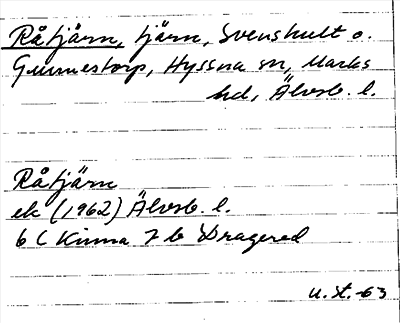 Råtjärn, tjärn, Svenshult o.
Gunnestorp, Hyssna sn, Marks
hd, Älvsb. l.
Råtjärn
ek (1962) Älvsb. l.
6 C Kinna 7 b Dragered
U. St. -63